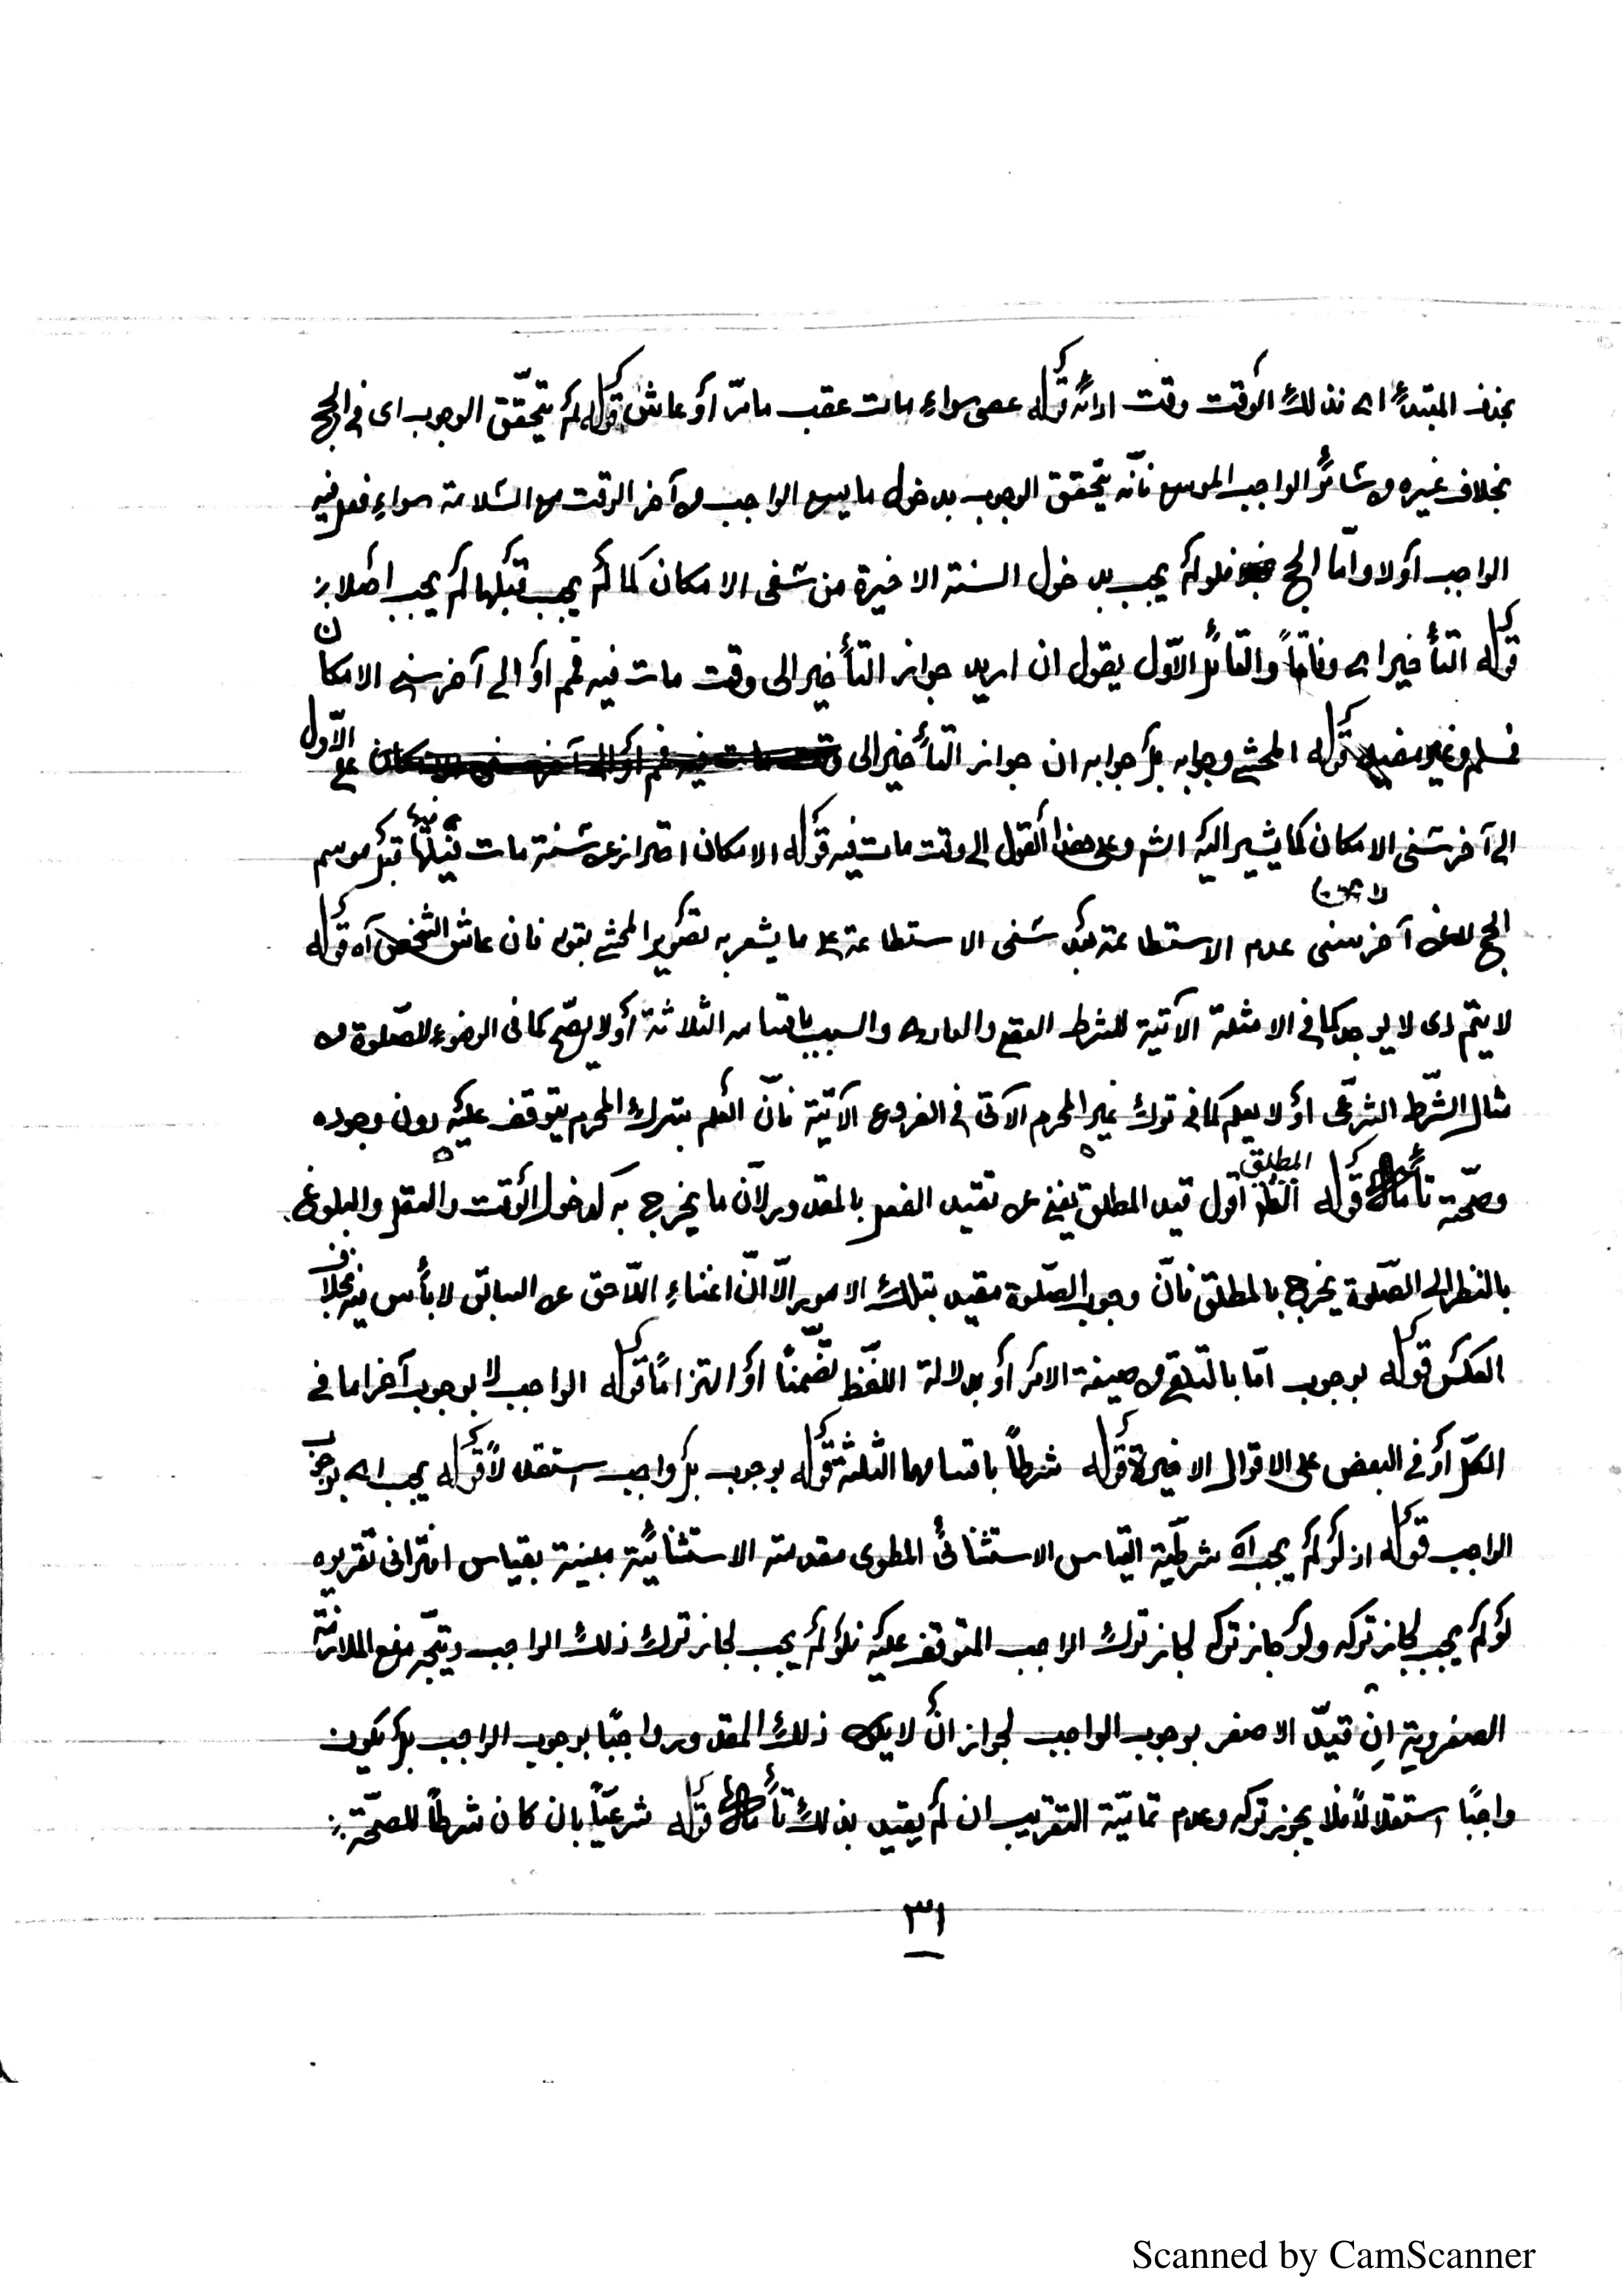 بحذف المبتدأ اى فذلك الوقت وقت ادائه قوله عصى سواء مات عقب مامرّ أو عاش قوله لم يتحقّق الوجوب اى فى الحج
بخلاف غيره من سائر الواجب الموسع فانّه يتحقق الوجوب بدخول ما يسع الواجب من آخر الوقت مع السّلامة سواء فعل فيه
الواجب أولا وامّا الحج فلو لم يجب بدخول السنة الاخيرة من سنى الامكان كما لم يجب قبلها لم يجب اصلا
قوله التأخير اى وفاقاً والقائل الاوّل يقول ان اريد جواز التأخير الى وقت مات فيه فمم أو الى آخر سنى الامكان
فسلم وغير مضيد قوله المحشى وجوابه بل جوابه ان جواز التأخير الى على الاوّل
الى آخر سنى الامكان كما يشير اليه الشم وعلى هذا القول الى وقت مات فيه قوله الامكان احتراز عن سنة مات فيها قبل موسم
الحج لا عن آخر سنى عدم الاستطاعة بعد سنى الاستطاعة على ما يشعر به تقرير المحشى بقوله فان عاش الشخص آه قوله
لا يتم اى لا يوجد كما فى الامثلة الآتية للشرط العقلى والعادى والسبب باقسامه الثلاثة أو لا يصّح كما فى الوضوء للصّلوة من
مثال الشّرط الشرعّى أو لا يعلم كما فى ترك غير المحرم الآتى فى الفروع الآتية فانّ العلم بترك المحرم يتوقف عليه دون وجوده
وصحّته تأمل قوله المطلق أقول قيد المطلق يغنى عن تقيد الفعل بالمقدور لانّ ما يخرج به كدخول الوقت والعقل والبلوغ
بالنظر الى الصّلوة يخرج بالمطلق فانّ وجوب الصّلوة مقيد بتلك الامور الّا انّ اغناء اللّاحق عن السابق لا بأس فيه بخلاف
العكس قوله بوجوب امّا بالتبع من صيغة الامر أو بدلالة اللفظ تضّمنًا أو التزامًا قوله الواجب لا بوجوب آخر اما فى
الكلّ أو فى البعض على الاقوال الاخيرة قوله شرطاً باقسامها الثلثة قوله بوجوب بل واجب استقلالاً قوله يجب اى بوجوب
الواجب قوله اذ لو لم يجب آه شرطيّة القياس الاستثنائى المطوى مقدمته الاستثنائيّة مبينة بقياس اقترانى تقريره
لو لم يجب لجاز تركه ولو جاز تركه لجاز ترك الواجب المتوقف عليه فلو لم يجب لجاز ترك ذلك الواجب ويتّجه منع الملازمة
الصغروية ان قيدّ الاصغر بوجوب الواجب لجواز ان لا يكون ذلك المقدور واجبًا بوجوب الواجب بل يكون
واجبًا استقلالاً فلا يجوز تركه وعدم تماميّة التقريب ان لم يقيد بذلك تأمل قوله شرعيّاً بان كان شرطاً للصحّة
٣١
Scanned by CamScanner